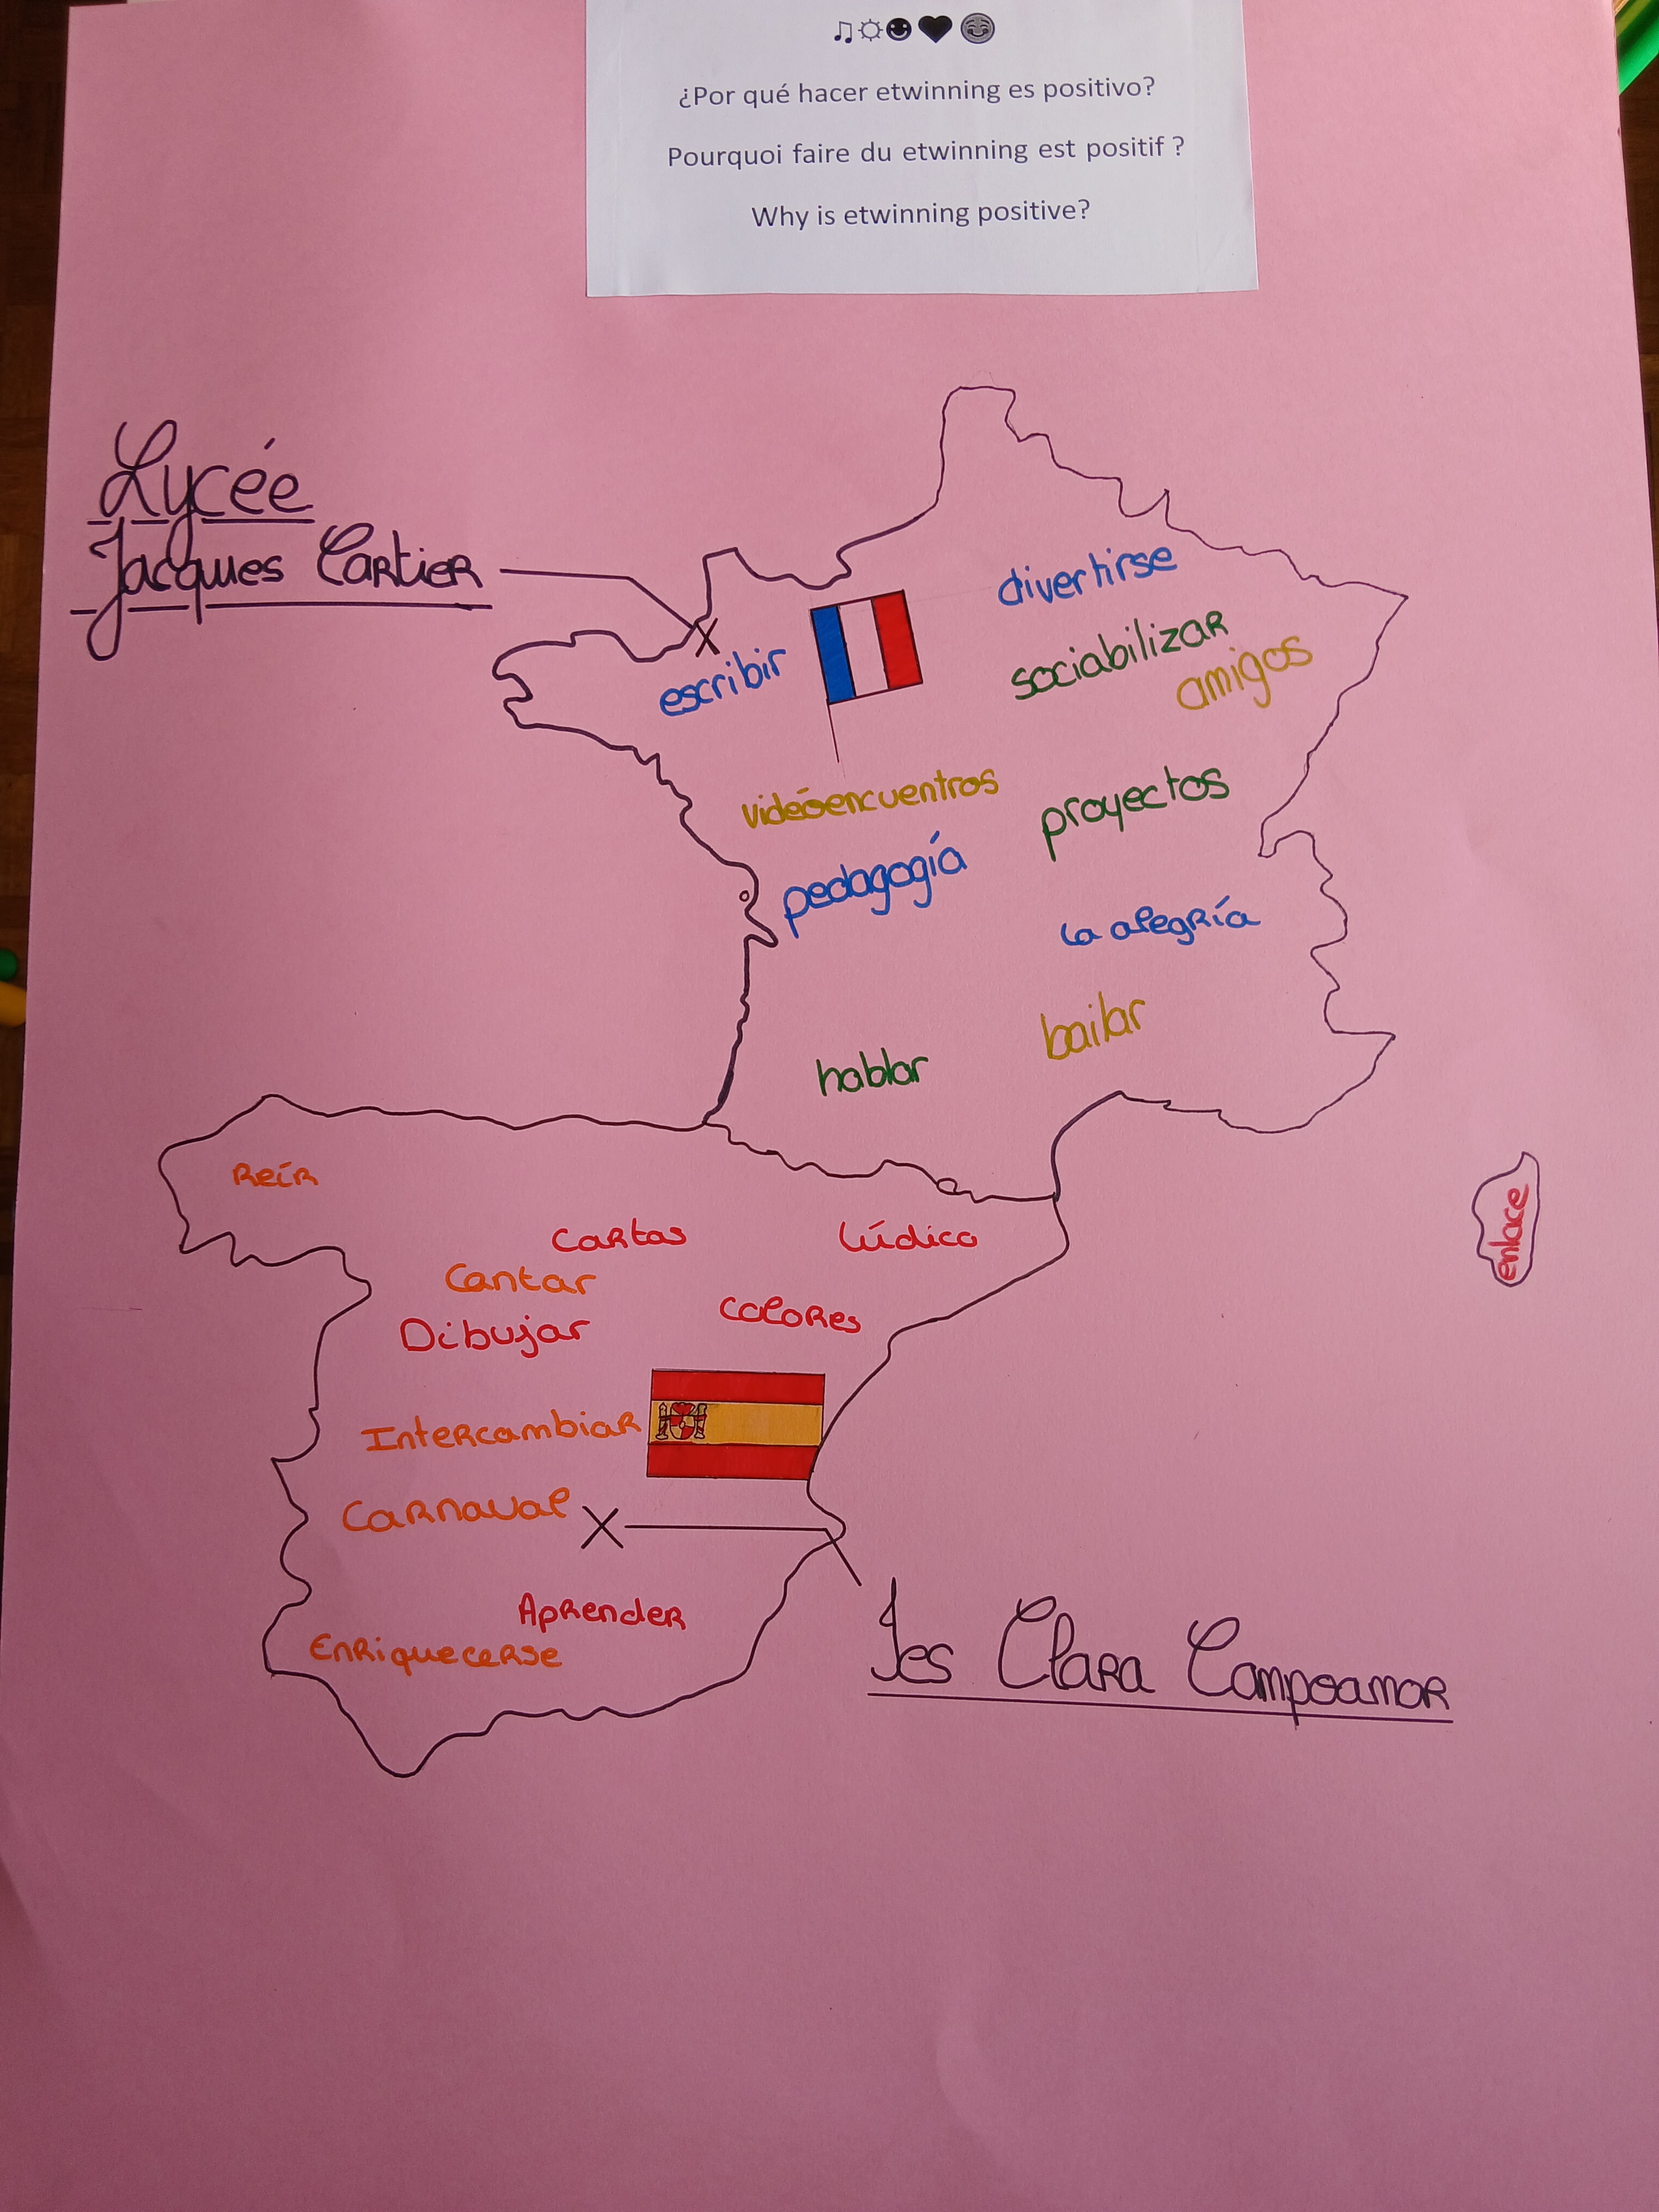 ♫☼☻♥😊
¿Por qué hacer etwinning es positivo?
Pourquoi faire du etwinning est positif ?
Why is etwinning positive?
Lycée
Jacques Cartier
divertirse
sociabilizar
amigos
escribir
vidéoencuentros
proyectos
pedagogía
la alegría
bailar
hablar
Reír
cartas
lúdico
enlace
Cantar
Dibujar
colores
Intercambiar
Carnaval
Aprender
Enriquecerse
Ies Clara Campoamor